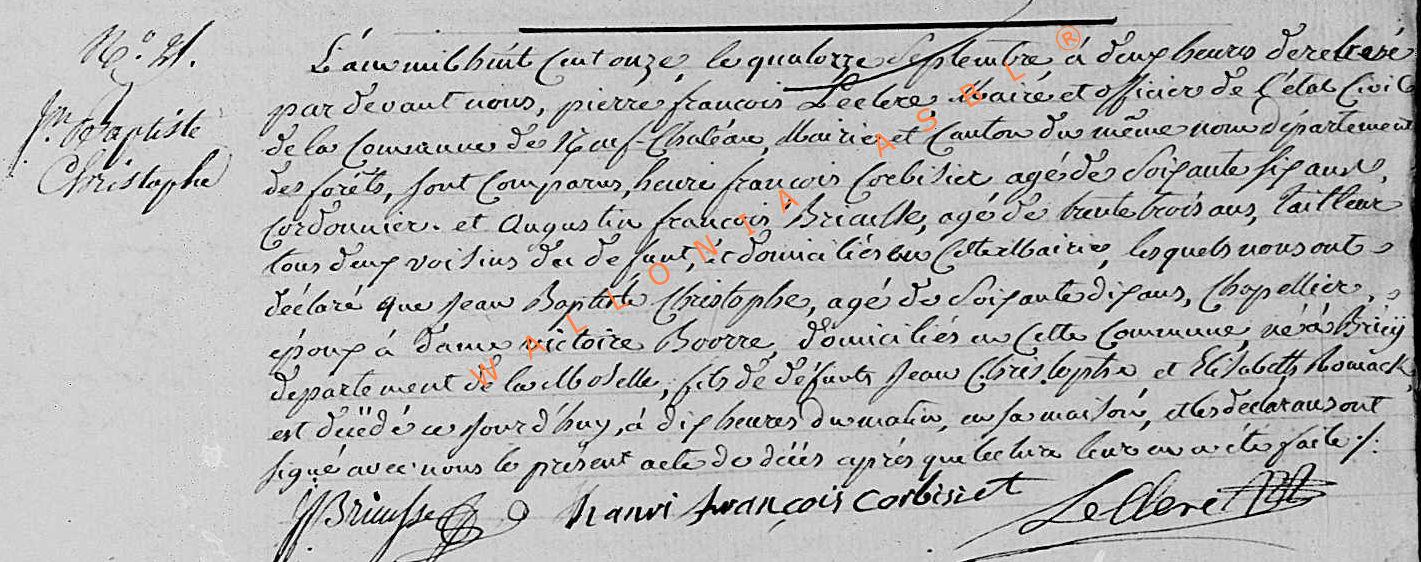 N.° 21.
Jn. Baptiste
Christophe
L'an mil huit cent onze, le quatorze Septembre à deux heures de relevé
par devant nous, pierre françois Leclere Maire et officier de l'état Civil
de la Commune de Neuf-Château, Mairie et Canton du même nom département
des forêts, sont comparus, henri françois Corbisier agé de Soixante six ans,
Cordonnier. et Augustin françois Bricusse, agé de trente trois ans, tailleur
tous deux voisins du défunt, et domiciliés en Cette Mairie, lesquels nous ont
déclaré que Jean Baptiste Christophe, agé de Soixante dix ans, Chapellier,
époux à dame victoire Boorre, domiciliés en Cette Commune, né à Briey
departement de la Moselle, fils de défunts Jean Christophe et Elisabeth Romack,
est décédé ce jourd'huy, à dix heures du matin, en sa maison, et les déclarans ont
signé avec nous le présent acte de décès après que lecture leur en a été faite ./.
Bricusse hanri françois Corbisiet Leclere
WALLONIA ASBL ®